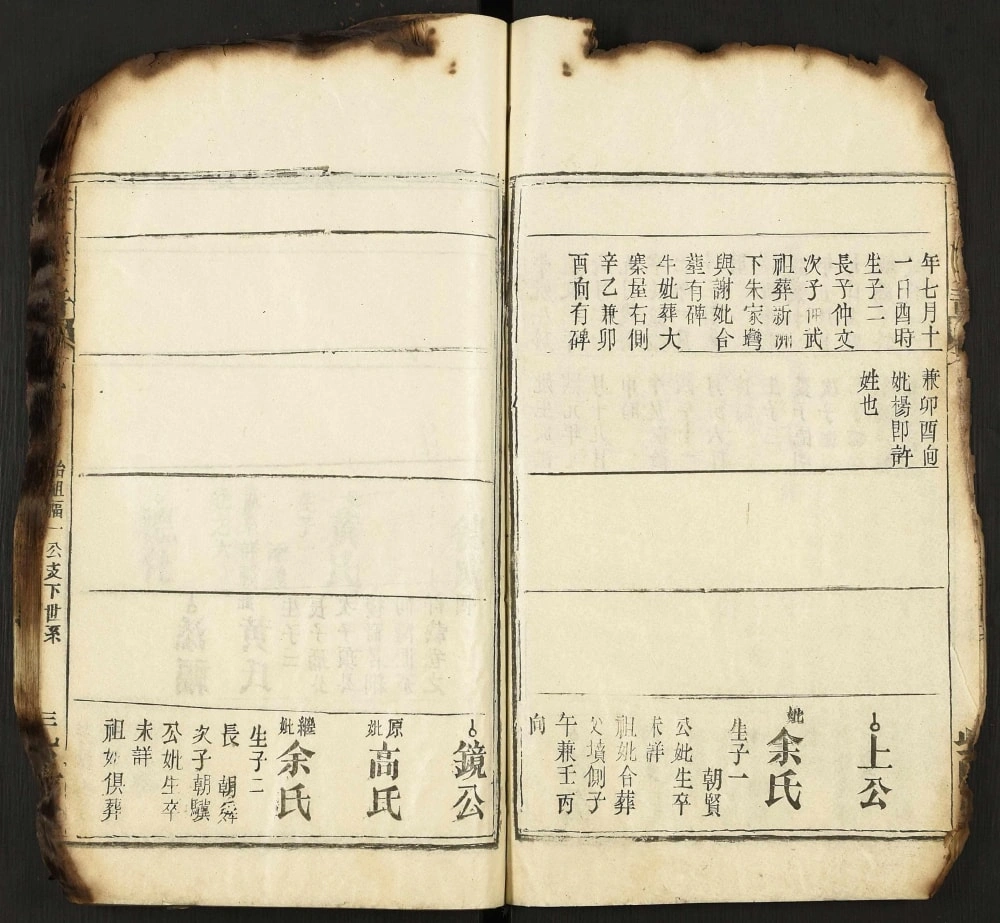 年七月十
一日酉時
生子二
長子仲文
次子仲武
祖葬新洲
下朱家灣
與謝妣合
塟有碑
牛妣葬大
寨屋右側
辛乙兼卯
酉向有碑
兼卯酉向
妣楊即許
姓也
上公
妣余氏
生子一
朝賢
公妣生卒
未詳
祖妣合葬
父墳側子
午兼壬丙
向
鏡公
原妣高氏
繼妣余氏
生子二
長 朝舜
次子朝驥
公妣生卒
未詳
祖妣俱葬
始祖福一公支下世系
三